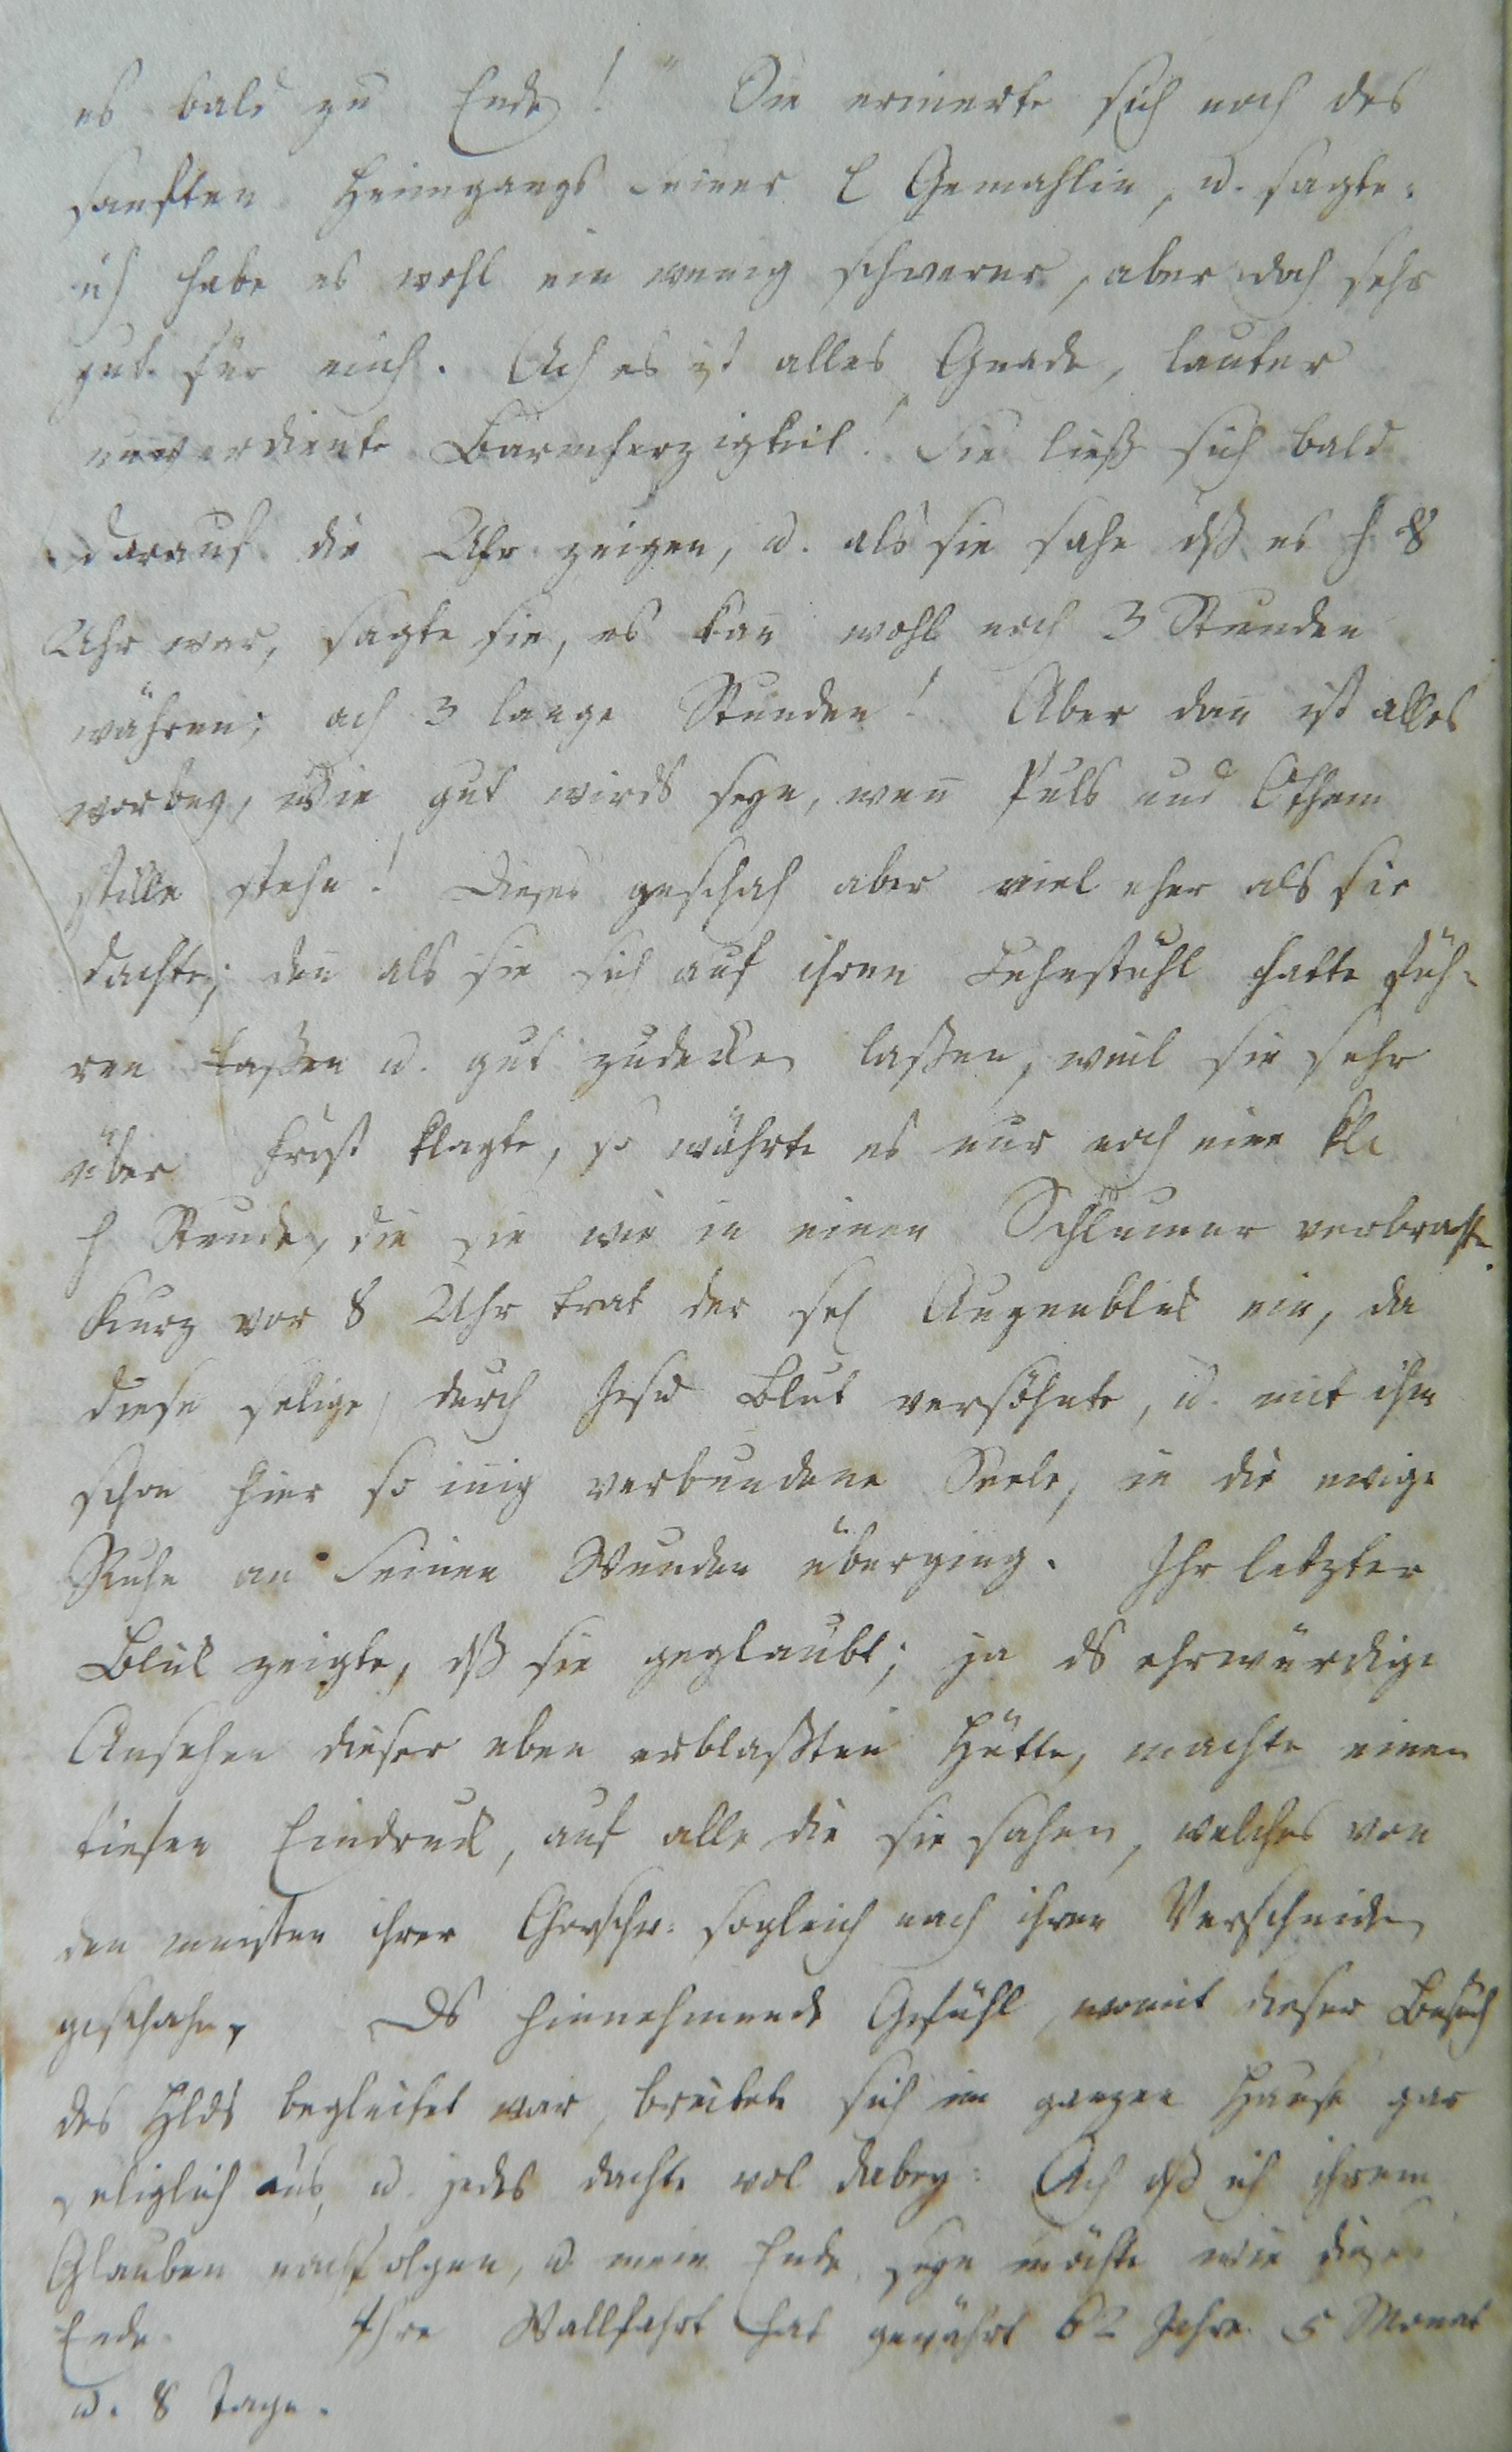 es bald zu Ende!" Sie erinerte sich noch des
sanften Heimgangs seiner l Gemahlin, u. sagte:
ich habe es wohl ein wenig schwerer, aber doch sehr
gut für mich. Ach es ist alles Gnade, lauter
unverdiente Barmherzigkeit! Sie ließ sich bald
darauf die Uhr zeigen, u. als sie sahe dß es h 8
Uhr war, sagte sie, es kan̄ wohl noch 3 Stunden
währen; ach 3 lange Stunden! Aber dan̄ ist alles
vorbey, Wie gut wirds seyn, wen̄ Puls und Othem
stille stehn! Dieses geschah aber viel eher als sie
dachte; den̄ als sie sich auf ihren Lehnstuhl hatte füh-
ren laßen u. gut zudecken laßen, weil sie sehr
über Frost klagte, so währte es nur noch eine kle
h Stunde, die sie wie in einen Schlum̄er verbrachte.
Kurz vor 8 Uhr trat der sel Augenblick ein, da
diese selige, durch Jesu Blut versöhnte, u. mit ihm
schon hier so in̄ig verbundene Seele, in die ewige
Ruhe an Seinen Wunden überging. Ihr letzter
Blick zeigte, dß sie geglaubt; ja ds ehrwürdige
Ansehen dieser eben erblaßten Hütte, machte einen
tiefen Eindruck, auf alle die sie sahen, welches von
den meisten ihrer Chorschw: sogleich nach ihren Verscheiden
geschahe. Ds hinnehmende Gefühl, womit dieser Besuch
des Hlds begleitet war, breitete sich im ganzen Hause gar
seliglich aus, u. jedes dachte wol dabey: Ach dß ich ihrem
Glauben nachfolgen, u. mein Ende seyn möchte wie dieses
Ende. Ihre Wallfahrt hat gewährt 62 Jahre 5 Monat
u. 8 Tage.